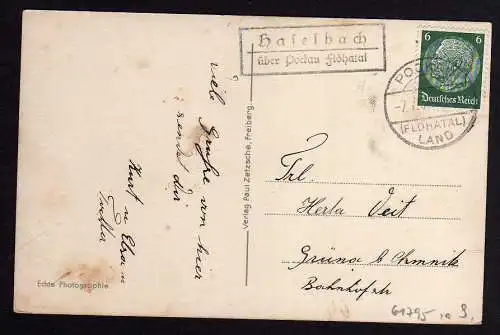 Haselbach
über Pockau Flöhatal
6 6
Deutsches Reich
(FLÖHATAL)
LAND
viele Grüße von hier
sendet dir
Kurt u. Elsa u.
Verlag Paul Zetzsche, Freiberg.
Echte Photographie
Frl.
Herta Veit
Grüna b. Chemnik
Bahnhofstr
61795